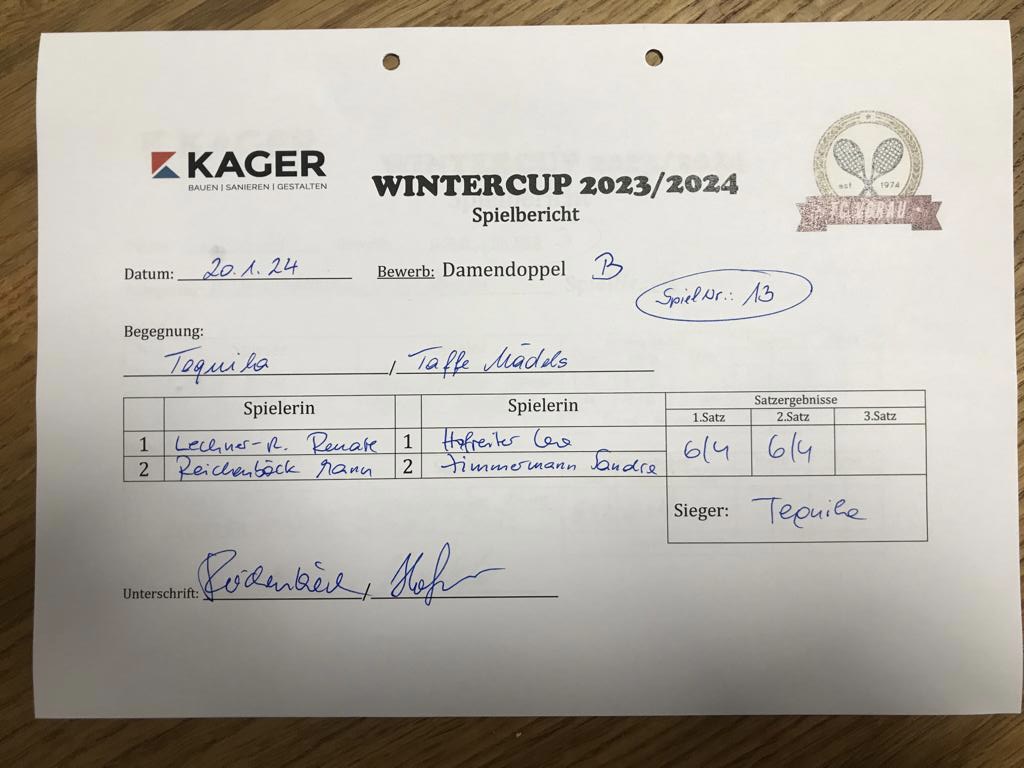 KAGER
BAUEN | SANIEREN | GESTALTEN
WINTERCUP 2023/2024
Spielbericht
est 1974
TC VORAU
Datum: 20.1.24 Bewerb: Damendoppel B
Spiel Nr.: 13
Begegnung:
Tequila / Taffe Mädels
Spielerin Spielerin Satzergebnisse
1.Satz 2.Satz 3.Satz
1 Lechner-R. Renate 1 Hofreiter 6/4 6/4
2 Reichenbäck 2 Zimmermann Sandra
Sieger: Tequila
Unterschrift: /